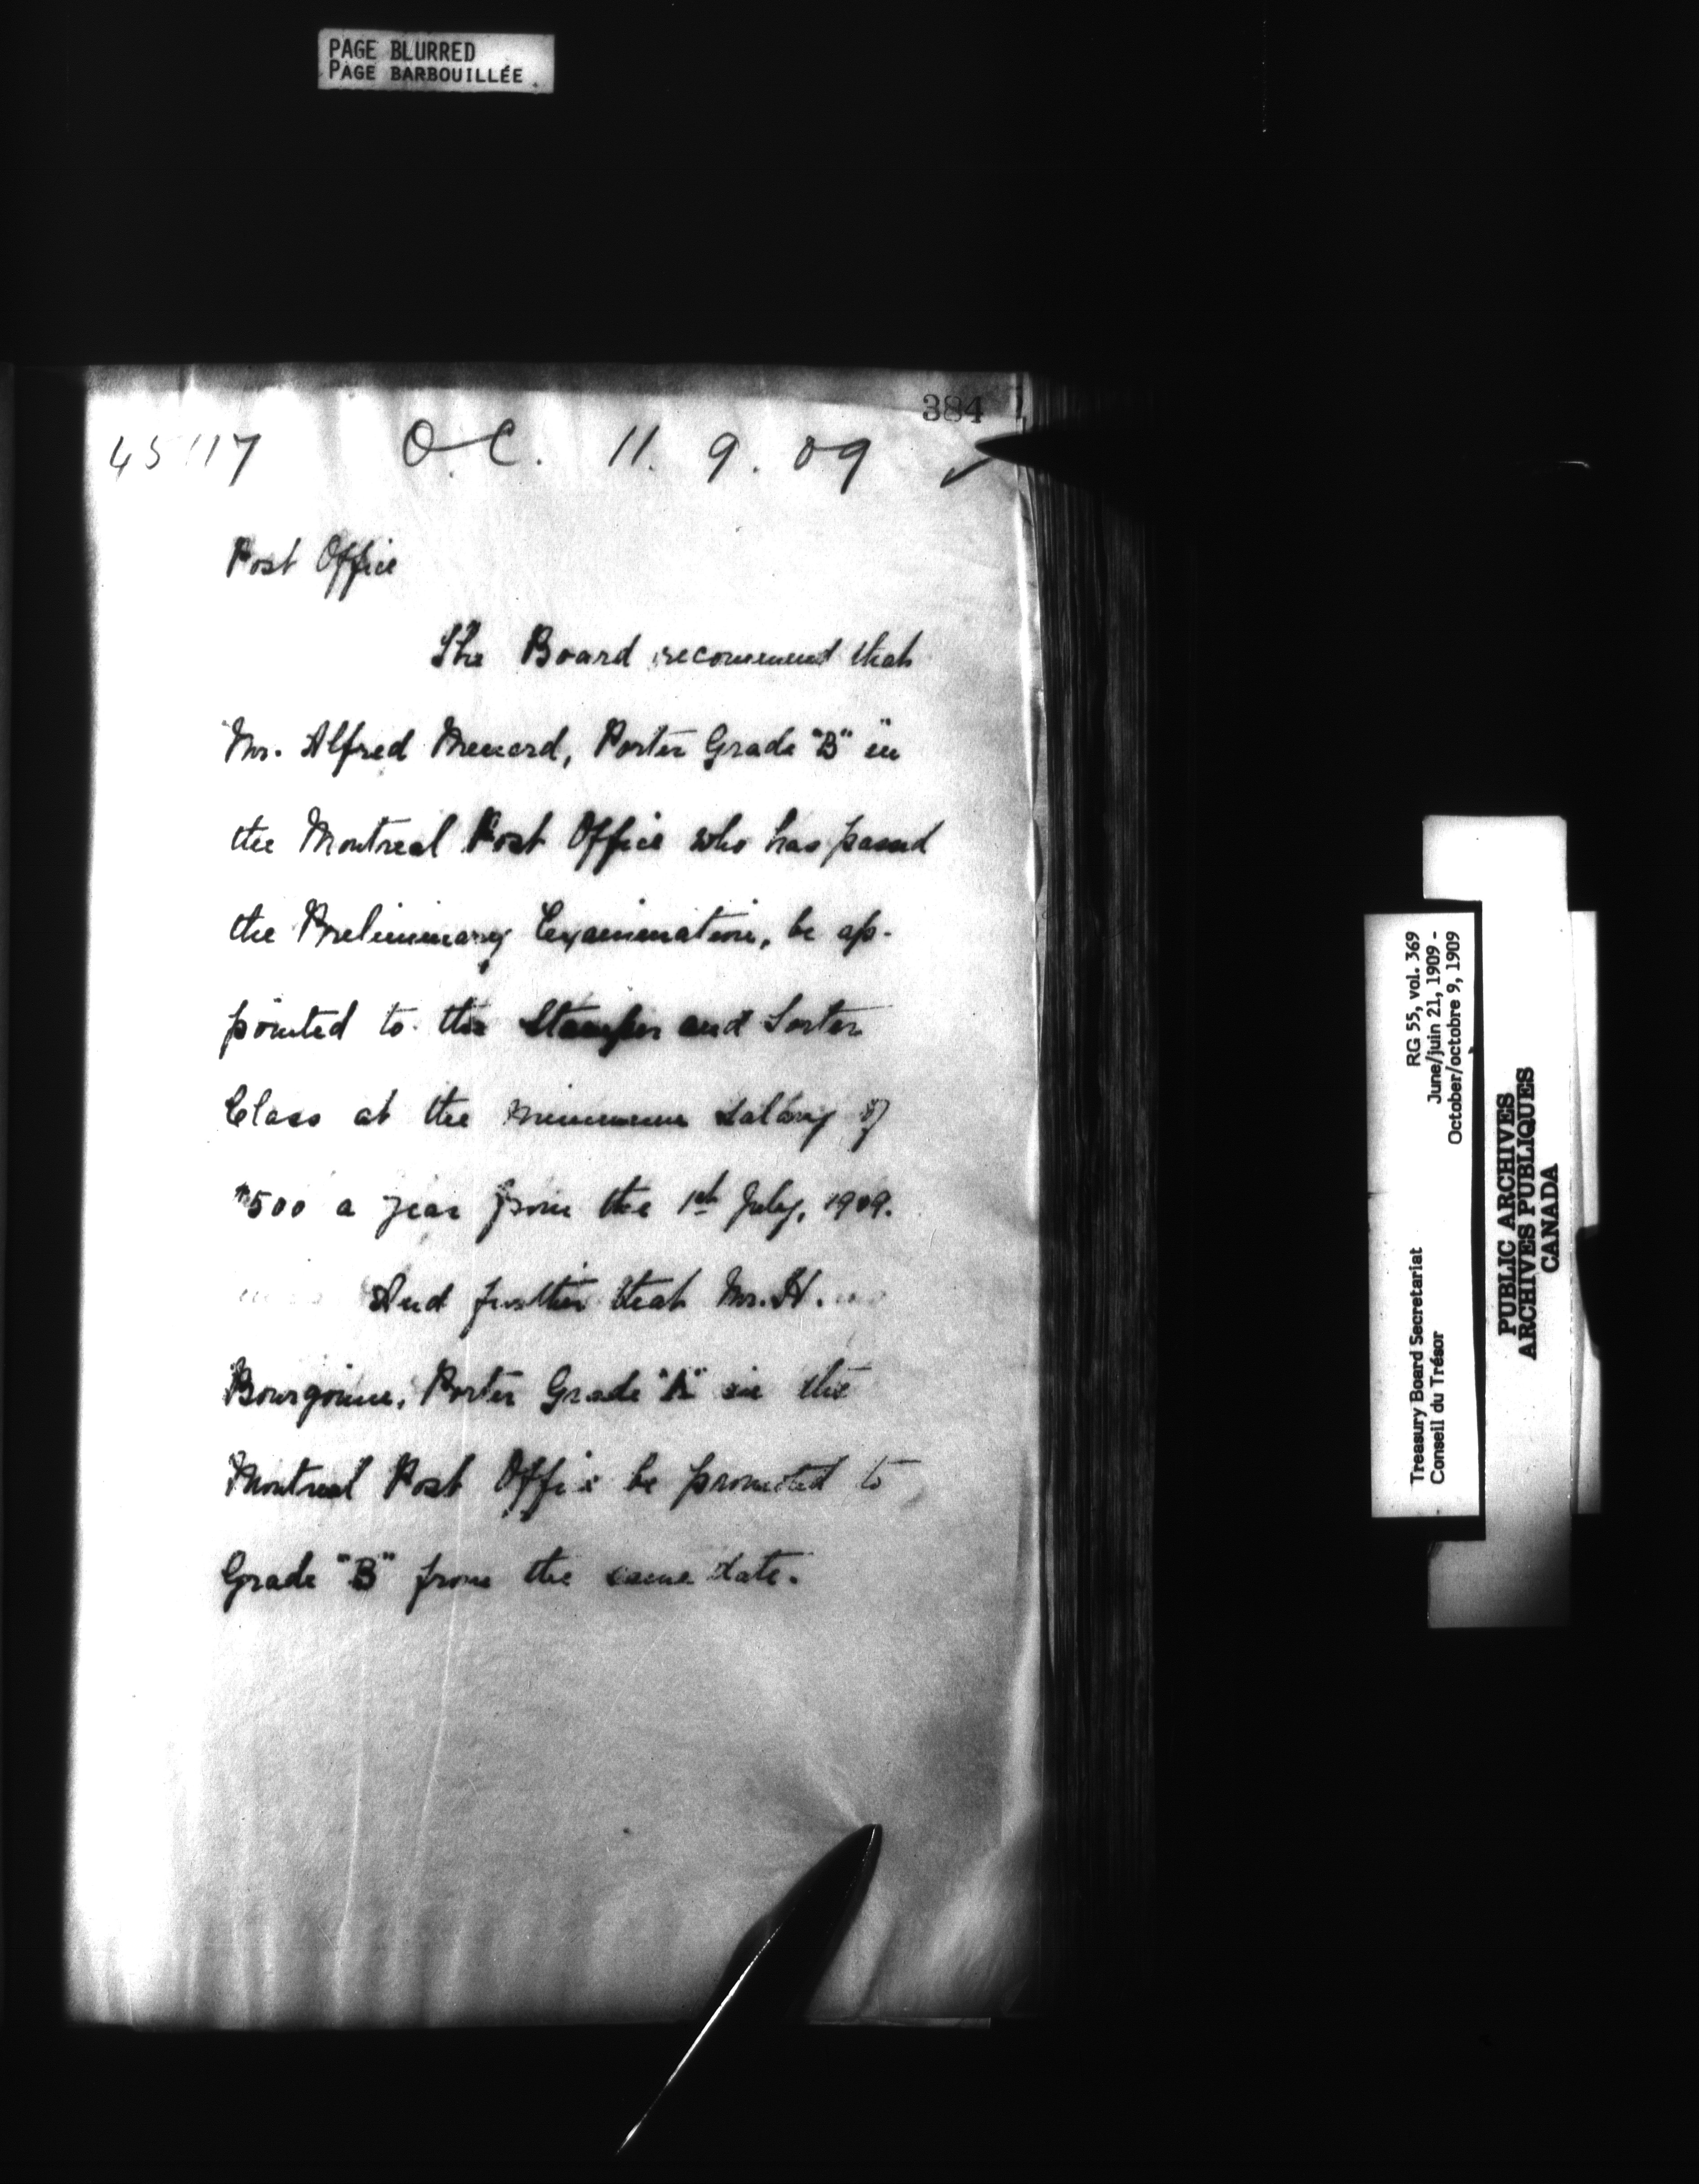 PAGE BLURRED
PAGE BARBOUILLÉE
384
45117 O.C. 11. 9. 09
Post Office
The Board recommend that
Mr. Alfred Menard, Porter Grade "B" in
the Montreal Post Office who has passed
the Preliminary Examination, be ap-
pointed to the Stamper and Sorter
Class at the minimum salary of
$500 a year from the 1st July, 1909.
And further that Mr. H.
Bourgoine, Porter Grade "A" in the
Montreal Post Office be promoted to
Grade "B" from the same date.
Treasury Board Secretariat RG 55, vol. 369
Conseil du Trésor June/juin 21, 1909 -
October/octobre 9, 1909
PUBLIC ARCHIVES
ARCHIVES PUBLIQUES
CANADA